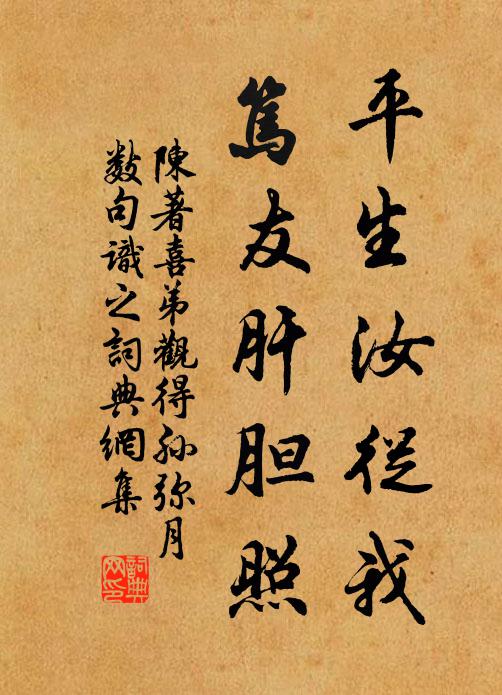 平生汝從我
篤友肝胆照
陳著喜弟觀得孫弥月
數句識之詞典網集
詞典网印